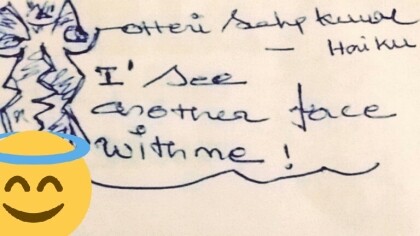 otteri Selvakumar
— Haiku
I' See
another face
with me !